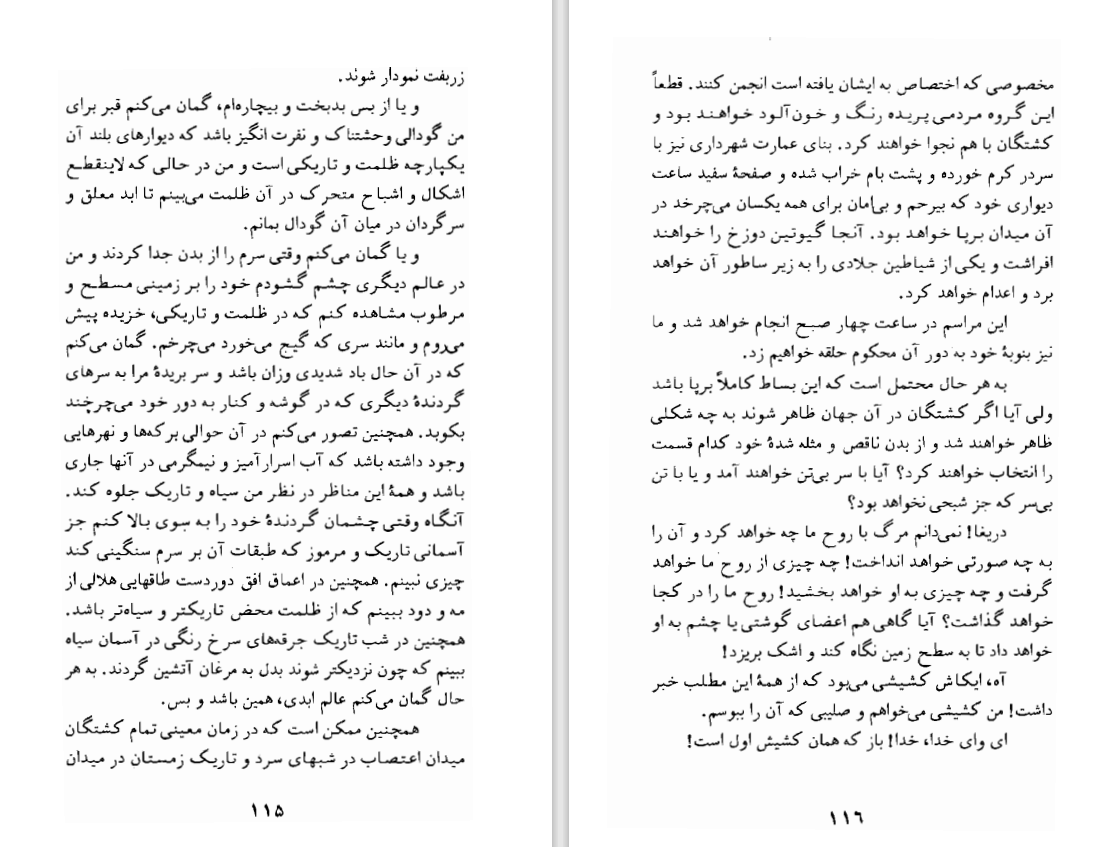 زربفت نمودار شوند.
و یا از بس بدبخت و بیچاره‌ام، گمان می‌کنم قبر برای
من گودالی وحشتناک و نفرت انگیز باشد که دیوارهای بلند آن
یکپارچه ظلمت و تاریکی است و من در حالی که لاینقطع
اشکال و اشباح متحرک در آن ظلمت می‌بینم تا ابد معلق و
سرگردان در میان آن گودال بمانم.
و یا گمان می‌کنم وقتی سرم را از بدن جدا کردند و من
در عالم دیگری چشم گشودم خود را بر زمینی مسطح و
مرطوب مشاهده کنم که در ظلمت و تاریکی، خزیده پیش
می‌روم و مانند سری که گیج می‌خورد می‌چرخم. گمان می‌کنم
که در آن حال باد شدیدی وزان باشد و سر بریدهٔ مرا به سرهای
گردندهٔ دیگری که در گوشه و کنار به دور خود می‌چرخند
بکوبد. همچنین تصور می‌کنم در آن حوالی برکه‌ها و نهرهایی
وجود داشته باشد که آب اسرارآمیز و نیمگرمی در آنها جاری
باشد و همهٔ این مناظر در نظر من سیاه و تاریک جلوه کند.
آنگاه وقتی چشمان گردندهٔ خود را به سوی بالا کنم جز
آسمانی تاریک و مرموز که طبقات آن بر سرم سنگینی کند
چیزی نبینم. همچنین در اعماق افق دوردست طاقهایی هلالی از
مه و دود ببینم که از ظلمت محض تاریکتر و سیاه‌تر باشد.
همچنین در شب تاریک جرقه‌های سرخ رنگی در آسمان سیاه
ببینم که چون نزدیکتر شوند بدل به مرغان آتشین گردند. به هر
حال گمان می‌کنم عالم ابدی، همین باشد و بس.
همچنین ممکن است که در زمان معینی تمام کشتگان
میدان اعتصاب در شبهای سرد و تاریک زمستان در میدان
۱۱۵
مخصوصی که اختصاص به ایشان یافته است انجمن کنند. قطعاً
این گروه مردمی پریده رنگ و خون‌آلود خواهند بود و
کشتگان با هم نجوا خواهند کرد. بنای عمارت شهرداری نیز با
سردر کرم خورده و پشت بام خراب شده و صفحهٔ سفید ساعت
دیواری خود که بیرحم و بی‌امان برای همه یکسان می‌چرخد در
آن میدان برپا خواهد بود. آنجا گیوتین دوزخ را خواهند
افراشت و یکی از شیاطین جلادی را به زیر ساطور آن خواهد
برد و اعدام خواهد کرد.
این مراسم در ساعت چهار صبح انجام خواهد شد و ما
نیز بنوبهٔ خود به دور آن محکوم حلقه خواهیم زد.
به هر حال محتمل است که این بساط کاملاً برپا باشد
ولی آیا اگر کشتگان در آن جهان ظاهر شوند به چه شکلی
ظاهر خواهند شد و از بدن ناقص و مثله شدهٔ خود کدام قسمت
را انتخاب خواهند کرد؟ آیا با سر بی‌تن خواهند آمد و یا با تن
بی‌سر که جز شبحی نخواهد بود؟
دریغا! نمی‌دانم مرگ با روح ما چه خواهد کرد و آن را
به چه صورتی خواهد انداخت! چه چیزی از روح ما خواهد
گرفت و چه چیزی به او خواهد بخشید! روح ما را در کجا
خواهد گذاشت؟ آیا گاهی هم اعضای گوشتی یا چشم به او
خواهد داد تا به سطح زمین نگاه کند و اشک بریزد!
آه، ایکاش کشیشی می‌بود که از همهٔ این مطلب خبر
داشت! من کشیشی می‌خواهم و صلیبی که آن را ببوسم.
ای وای خدا، خدا! باز که همان کشیش اول است!
۱۱٦